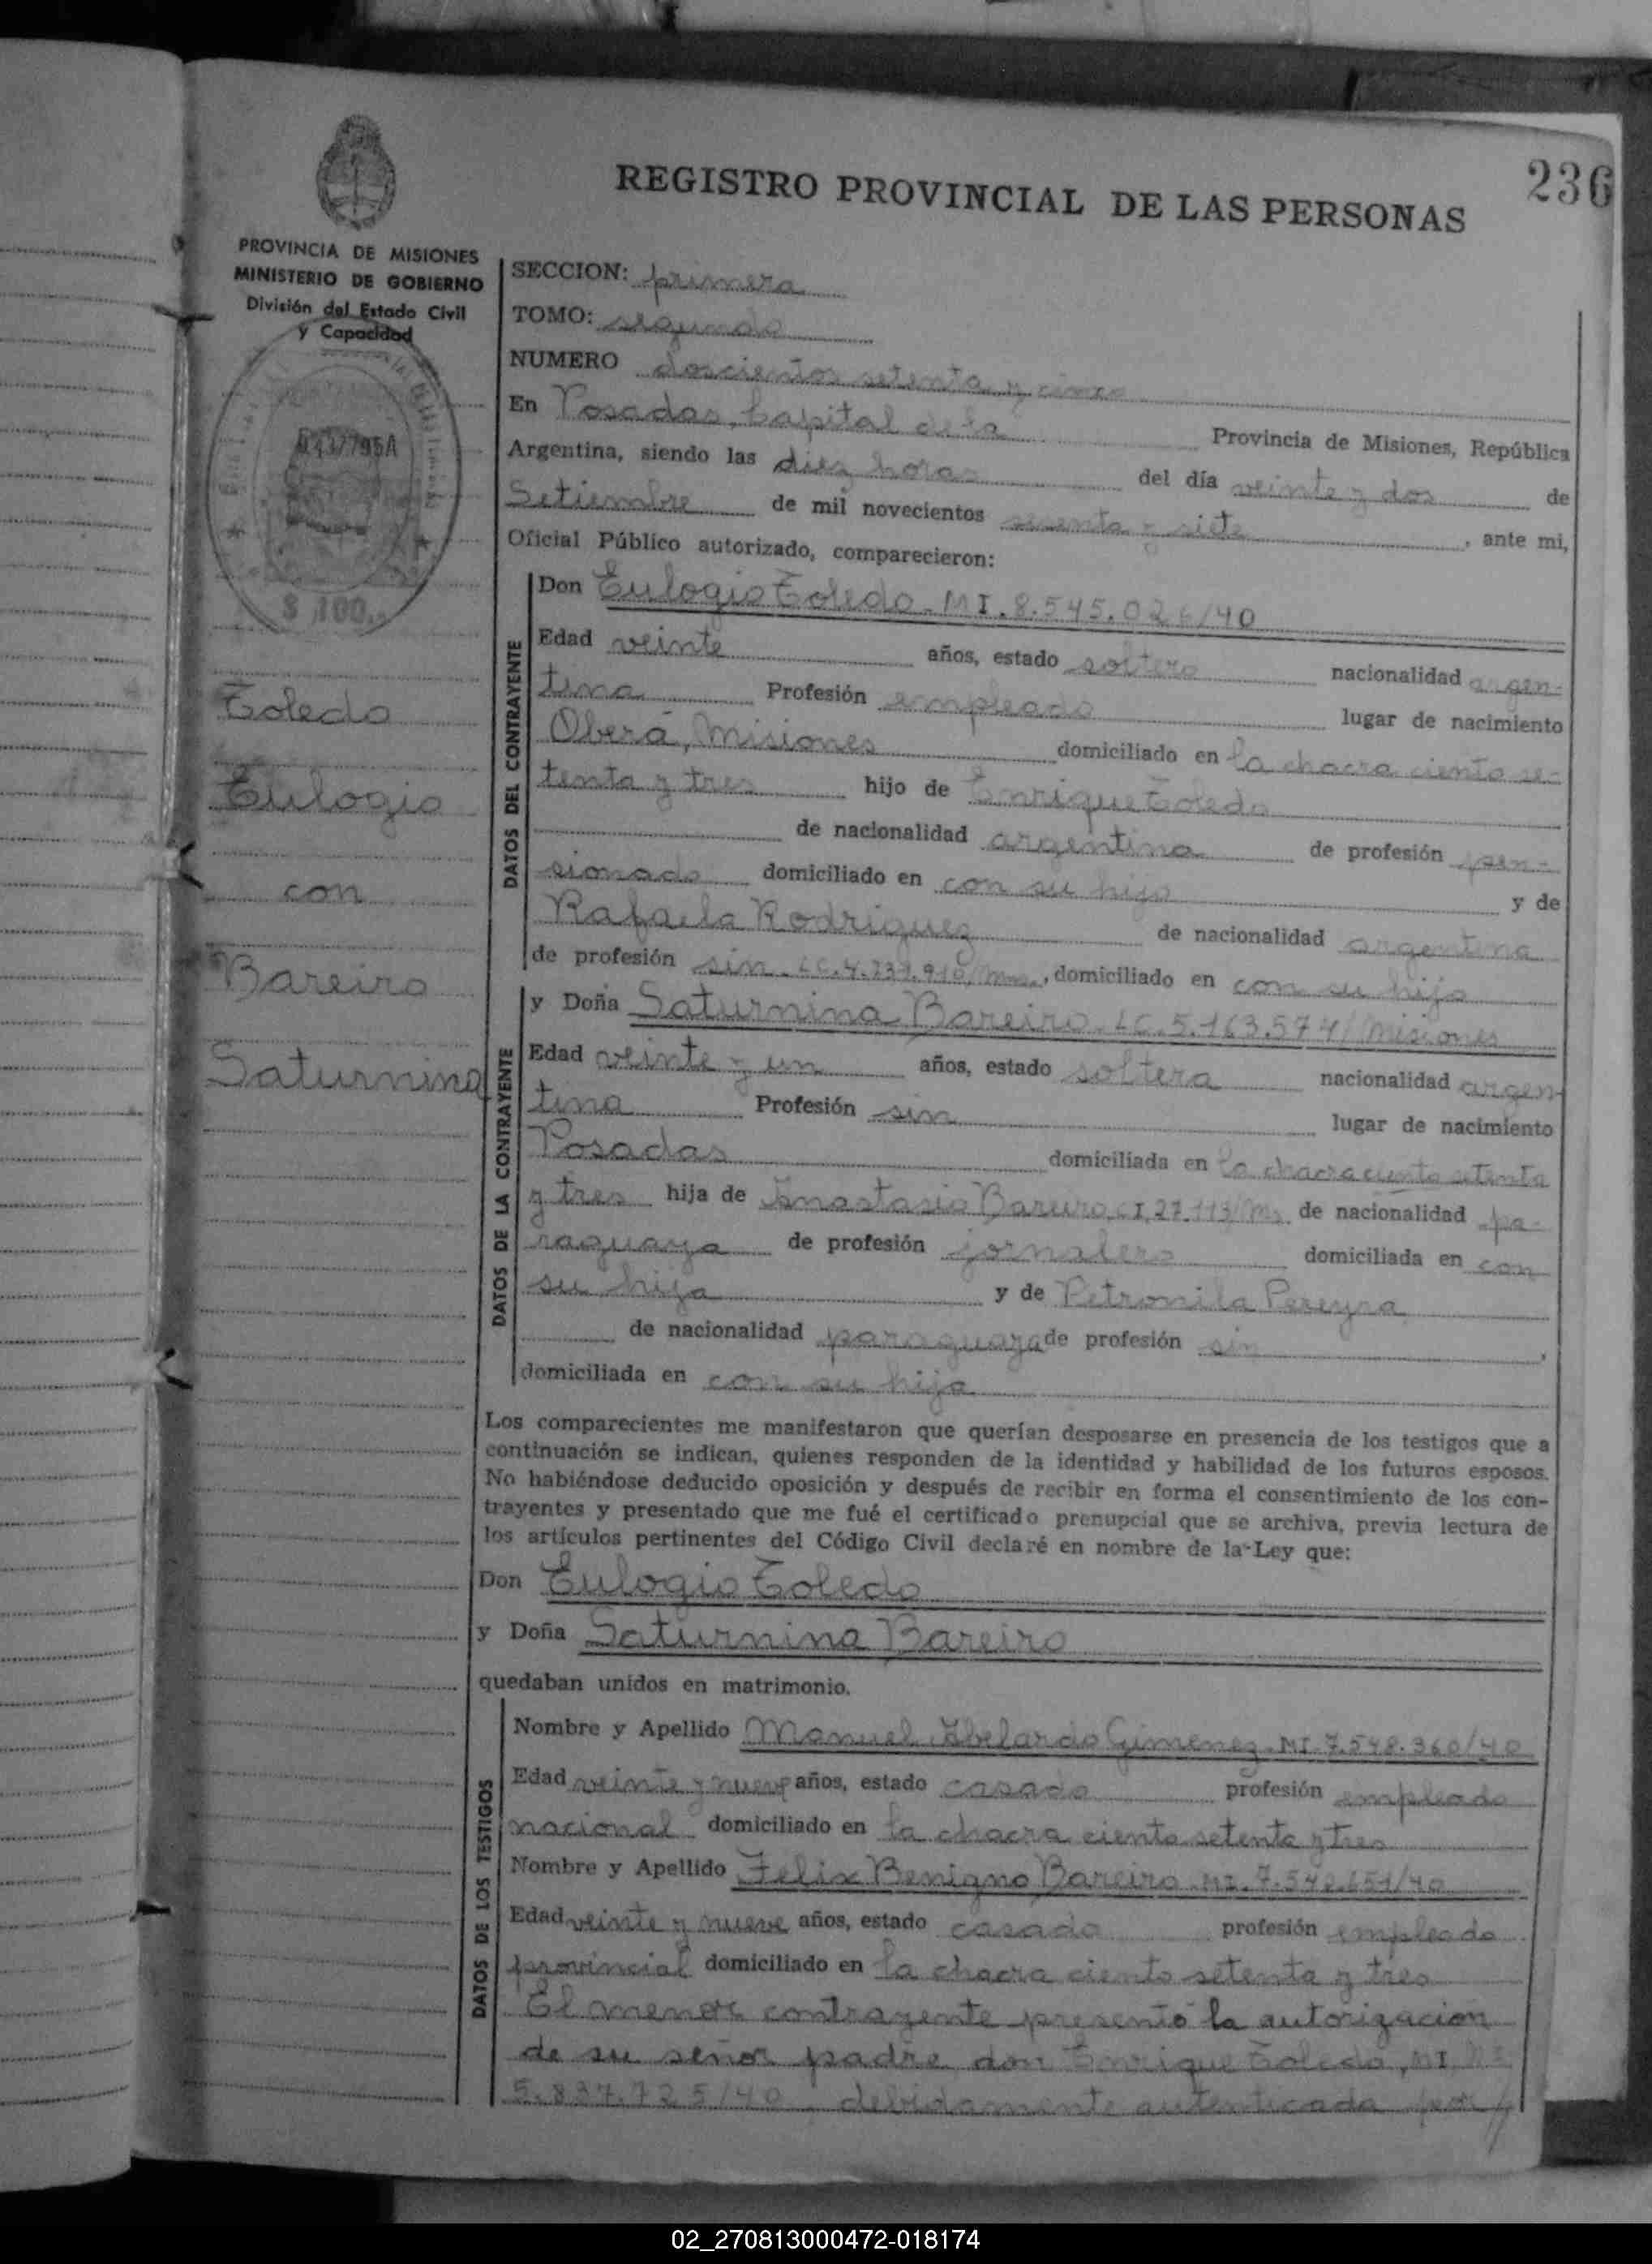 236
REGISTRO PROVINCIAL DE LAS PERSONAS
PROVINCIA DE MISIONES
MINISTERIO DE GOBIERNO
División del Estado Civil
y Capacidad
$ 100.-
Toledo
Eulogio
con
Bareiro
Saturnina
SECCION: primera
TOMO: segundo
NUMERO doscientos setenta y cinco
En Posadas, Capital de la Provincia de Misiones, República
Argentina, siendo las diez horas del día veinte y dos de
Setiembre de mil novecientos sesenta y siete, ante mi,
Oficial Público autorizado, comparecieron:
DATOS DEL CONTRAYENTE
Don Eulogio Toledo - MI. 8.545.026/40
Edad veinte años, estado soltero nacionalidad argen-
tina Profesión empleado lugar de nacimiento
Oberá, Misiones domiciliado en la chacra ciento se-
tenta y tres hijo de Enrique Toledo
de nacionalidad argentina de profesión pen-
sionado domiciliado en con su hijo y de
Rafaela Rodriguez de nacionalidad argentina
de profesión sin. LC. , domiciliado en con su hijo
DATOS DE LA CONTRAYENTE
y Doña Saturnina Bareiro. LC. 5.163.574/Misiones
Edad veinte y un años, estado soltera nacionalidad argen-
tina Profesión sin lugar de nacimiento
Posadas domiciliada en la chacra ciento setenta
y tres hija de Anastasio Bareiro CI. 27.113/Ms. de nacionalidad pa-
raguaya de profesión jornalero domiciliada en con
su hija y de Petronila Pereyra
de nacionalidad paraguaya de profesión sin ,
domiciliada en con su hija
Los comparecientes me manifestaron que querían desposarse en presencia de los testigos que a
continuación se indican, quienes responden de la identidad y habilidad de los futuros esposos.
No habiéndose deducido oposición y después de recibir en forma el consentimiento de los con-
trayentes y presentado que me fué el certificado prenupcial que se archiva, previa lectura de
los artículos pertinentes del Código Civil declaré en nombre de la Ley que:
Don Eulogio Toledo
y Doña Saturnina Bareiro
quedaban unidos en matrimonio.
DATOS DE LOS TESTIGOS
Nombre y Apellido Manuel Abelardo Gimenez. MI. 7.548.360/40
Edad veinte y nueve años, estado casado profesión empleado
nacional domiciliado en la chacra ciento setenta y tres
Nombre y Apellido Felix Benigno Bareiro MI. 7.548.651/40
Edad veinte y nueve años, estado casado profesión empleado
provincial domiciliado en la chacra ciento setenta y tres
El menor contrayente presentó la autorización
de su señor padre don Enrique Toledo, MI.
5.837.725/40, debidamente autenticada por //
02_270813000472-018174